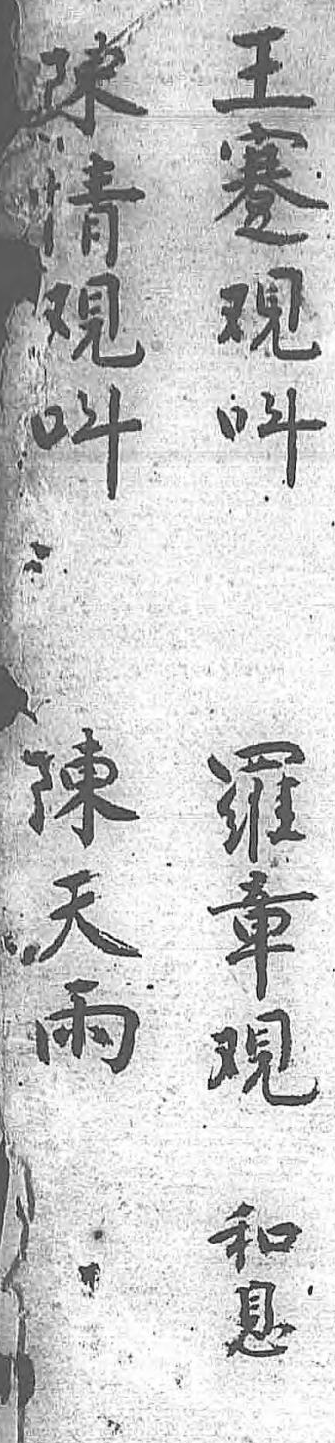 王蹇观叫 羅章观 和息
陳情观叫 陳天雨